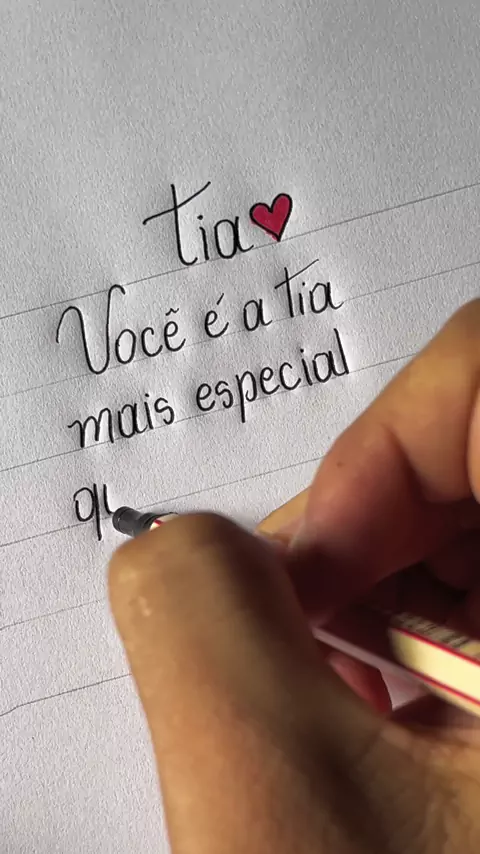 tia
Você é a tia
mais especial
qu